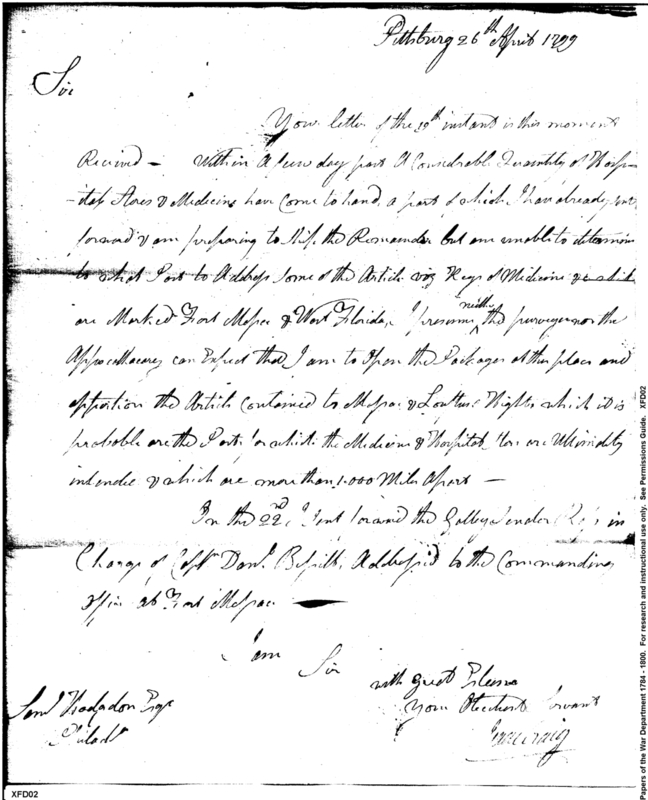 Pittsburg 26th April 1799
Sir
Your letter of the 19th instant is this moment
Recived — Within a few day past A Considrabl Quantity of Hospi-
-tal Stores & Medicins have come to hand, a part of which I have already sent
forward & am preparing to Ship the Remainder but am unable to determin
to what Post to Address some of the Article viz Kegs of Medicine &
are Marked Fort Massac & West Florida, I presume neither the purveyor nor the
Appocathacarey can Expect that I am to Open the Packages at this place and
apportion the Article contained to Massac & Loftus's Hights which it is
probable are the Posts for which the Medicins & Hospital Stores are Ultimately
intended & which are more than 1,000 Miles Apart —
On the 22nd I sent forward the Galley Sender Ross in
Charge of Capt Danl. Bissell, Addressd to the Commanding
Officer at Fort Massac —
I am
Sir
with Great Esteem
Your Obedient Servant
Isaac Craig
Saml Hodgdon Esqr
Philada
XFD02
Papers of the War Department 1784 - 1800. For research and instructional use only. See Permissions Guide. XFD02